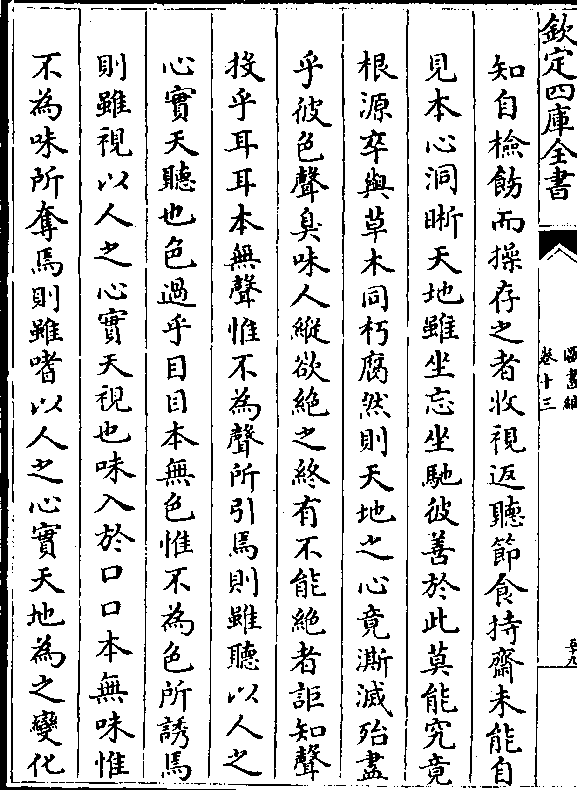 欽定四庫全書
圖書編
卷十三
知自檢飭而操存之者收視返聽節食持齋未能自
見本心洞晰天地雖坐忘坐馳彼善於此莫能究竟
根源卒與草木同朽腐然則天地之心竟澌滅殆盡
乎彼色聲臭味人縱欲絶之終有不能絶者詎知聲
投乎耳耳本無聲惟不為聲所引焉則雖聽以人之
心實天聽也色過乎目目本無色惟不為色所誘焉
則雖視以人之心實天視也味入於口口本無味惟
不為味所奪焉則雖嗜以人之心實天地為之變化